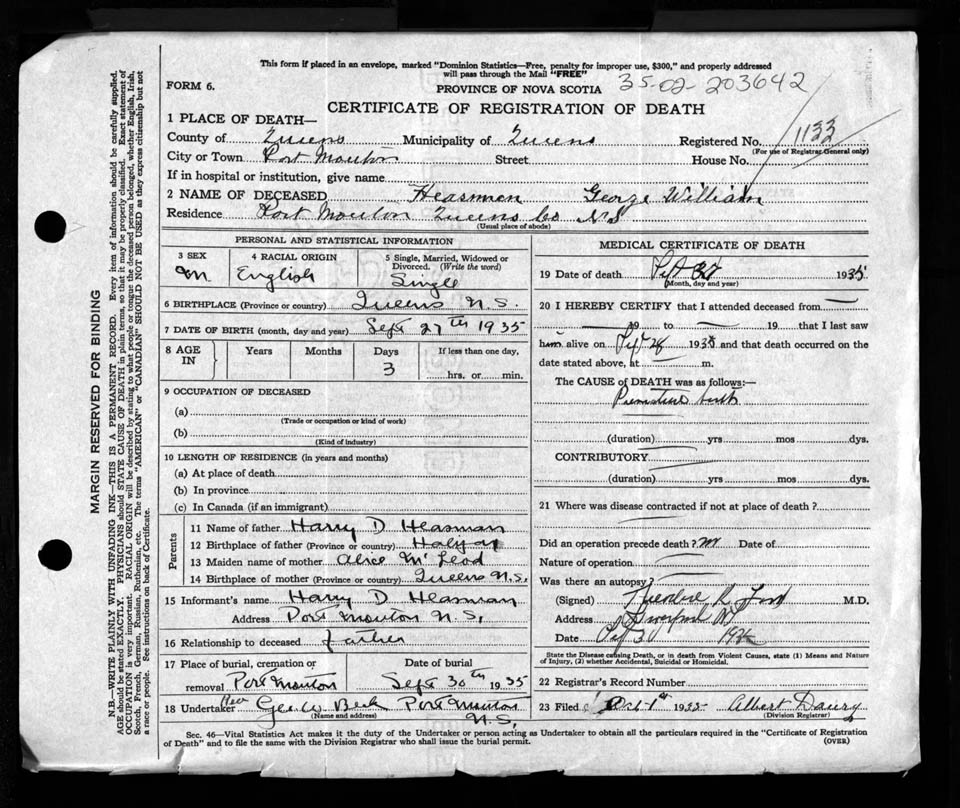 This form if placed in an envelope, marked "Dominion Statistics—Free, penalty for improper use, $300," and properly addressed
will pass through the Mail "FREE"
35-02-203642
FORM 6.
PROVINCE OF NOVA SCOTIA
CERTIFICATE OF REGISTRATION OF DEATH
1 PLACE OF DEATH—
County of Queens Municipality of Queens Registered No. 1133
(For use of Registrar General only)
City or Town Port Mouton Street House No.
If in hospital or institution, give name
2 NAME OF DECEASED Heasman George William
Residence Port Mouton Queens Co NS
(Usual place of abode)
PERSONAL AND STATISTICAL INFORMATION
3 SEX 4 RACIAL ORIGIN 5 Single, Married, Widowed or
Divorced. (Write the word)
M English Single
6 BIRTHPLACE (Province or country) Queens N.S.
7 DATE OF BIRTH (month, day and year) Sept 27th 1935
8 AGE IN Years Months Days If less than one day,
3 hrs. or min.
9 OCCUPATION OF DECEASED
(a)
(Trade or occupation or kind of work)
(b)
(Kind of industry)
10 LENGTH OF RESIDENCE (in years and months)
(a) At place of death
(b) In province
(c) In Canada (if an immigrant)
Parents
11 Name of father Harry D Heasman
12 Birthplace of father (Province or country) Halifax
13 Maiden name of mother Alice McLeod
14 Birthplace of mother (Province or country) Queens N.S.
15 Informant's name Harry D Heasman
Address Port Mouton N.S,
16 Relationship to deceased father
17 Place of burial, cremation or Date of burial
removal Port Mouton Sept 30th 1935
18 Undertaker Rev Geo W Port Mouton
(Name and address) N.S,
MEDICAL CERTIFICATE OF DEATH
19 Date of death Sept 30 1935
(Month, day and year)
20 I HEREBY CERTIFY that I attended deceased from
19 to 19 that I last saw
him alive on Sept 28 1935 and that death occurred on the
date stated above, at m.
The CAUSE OF DEATH was as follows:—
Premature birth
(duration) yrs mos dys.
CONTRIBUTORY
(duration) yrs. mos. dys.
21 Where was disease contracted if not at place of death?
Did an operation precede death? Date of
Nature of operation
Was there an autopsy?
(Signed) Theodore R Ford M.D.
Address Liverpool NS
Date Sept 30 1935
State the Disease causing Death, or in death from Violent Causes, state (1) Means and Nature
of Injury, (2) whether Accidental, Suicidal or Homicidal.
22 Registrar's Record Number
23 Filed Oct 1st 1935 Albert Daury
(Division Registrar)
Sec. 46—Vital Statistics Act makes it the duty of the Undertaker or person acting as Undertaker to obtain all the particulars required in the "Certificate of Registration
of Death" and to file the same with the Division Registrar who shall issue the burial permit. (OVER)
MARGIN RESERVED FOR BINDING
N.B.—WRITE PLAINLY WITH UNFADING INK—THIS IS A PERMANENT RECORD. Every item of information should be carefully supplied.
AGE should be stated EXACTLY. PHYSICIANS should STATE CAUSE OF DEATH in plain terms, so that it may be properly classified. Exact statement of
OCCUPATION is very important. RACIAL ORIGIN will be described by stating to what people or tongue the deceased person belonged, whether English, Irish,
Scotch, French, German, Russian, Ruthenian, etc. The terms "AMERICAN" or "CANADIAN" SHOULD NOT BE USED as they express citizenship but not
a race or people. See instructions on back of Certificate.